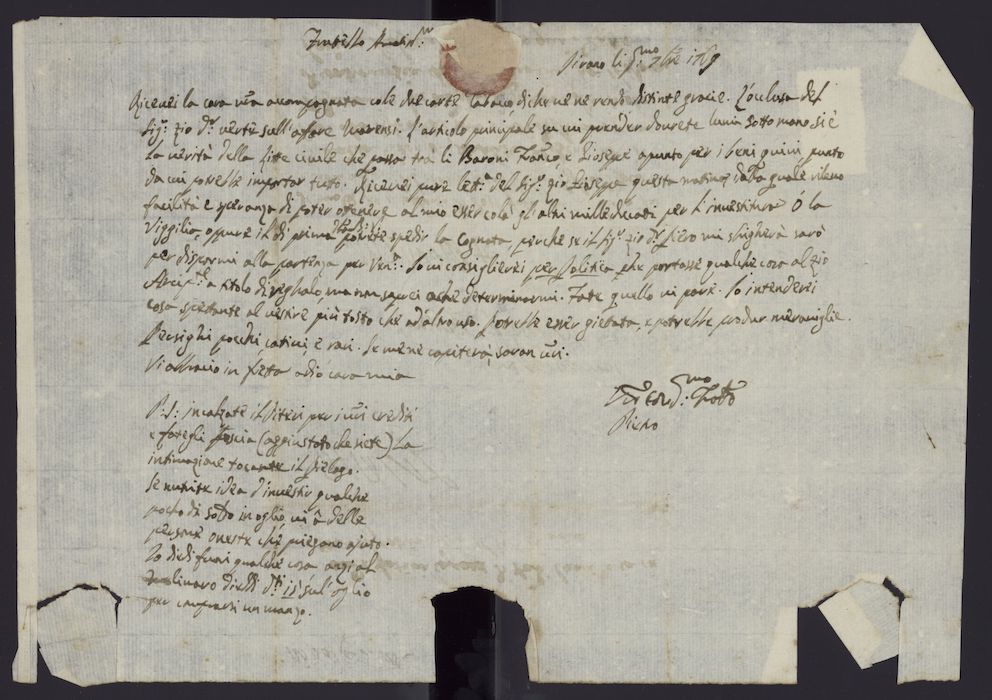 Fratello Amatiss.mo
Pirano li 1769
Ricevei la cara vra accompagnata cole due carte tabaco di che ne rendo distinte grazie. L'oclusa del
Sig.r Zio D.r verte sull'affare Marensi. L'articolo principale su cui prender dovrete lumi sotto mano si è
la verità della lite civile che passa trà li Baroni Franco, e Gioseppe apunto per i beni quivi punto
da cui potrebbe importar tutto. Ricevei pure lett.a del Sig.r Zio Gioseppe questa matina, dalla quale rilevo
facilità e speranza di poter ottenere al mio esser colà gl'altri mille ducati per l'investitura ò la
Viggilia, oppure il dì prima potrete spedir la Cognata, perche se il Sig.r Zio D.r Piero mi sbigherà sarò
per dispormi alla partenza per Ven.a. Io vi consiglierei per Politica, che portasse qualche cosa al Zio
a titolo di reghalo, ma non saprei a che determinarmi. Fate quello vi pare. Io intenderei
cosa spettante al vestire più tosto che ad'altro uso. Potrebbe esser gietata, e potrebbe produr meraviglie.
Persighi pochi, cativi, e rari. Se me ne capiterà, saran vri.
Vi abbracio in fretta adio cara mia
Piero
P:S: incalzate il per i vri crediti
e fategli poscia (aggiustato che siete) la
intimazione tocante il Pielago.
Se nutrite idea d'investir qualche
poco di Soldo in oglio, vi à delle
persone oneste che priegano ajuto.
Io diedi fuori qualche cosa anzi al
Molinaro sul'oglio
per comprarsi un manzo.